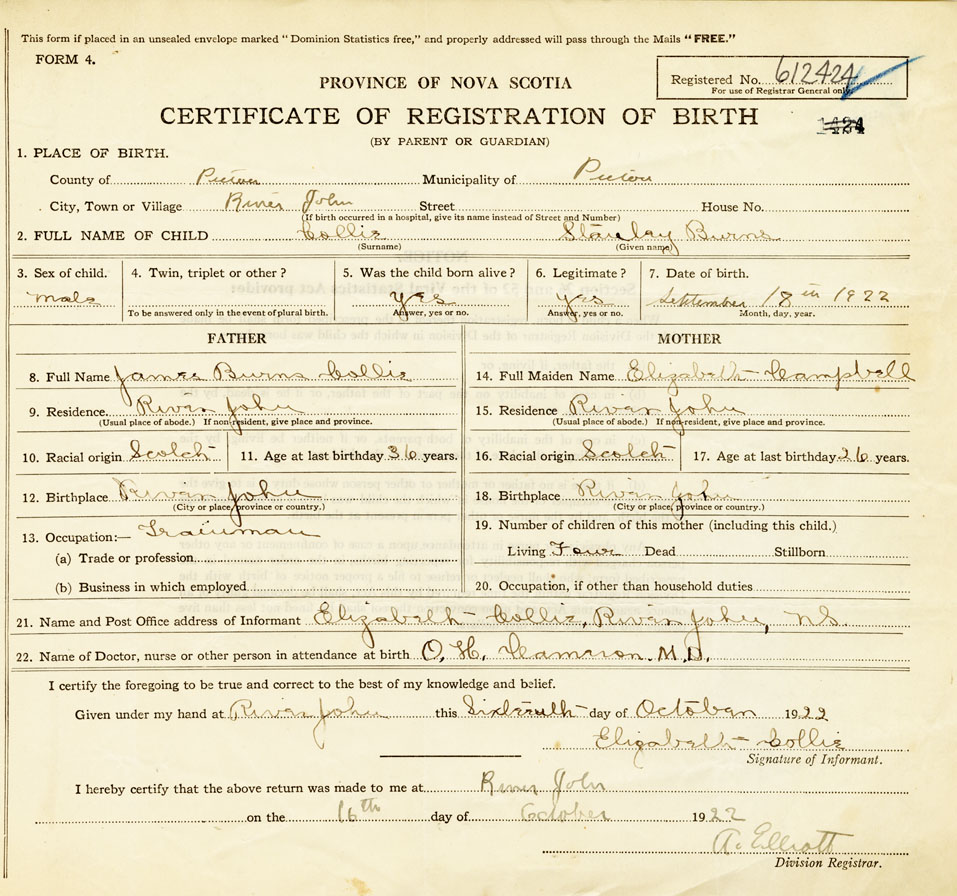 This form if placed in an unsealed envelope marked "Dominion Statistics free," and properly addressed will pass through the Mails "FREE."
FORM 4.
PROVINCE OF NOVA SCOTIA
Registered No. 612424
For use of Registrar General only.
CERTIFICATE OF REGISTRATION OF BIRTH
(BY PARENT OR GUARDIAN)
1. PLACE OF BIRTH.
County of Pictou Municipality of Pictou
City, Town or Village River John Street House No.
(If birth occurred in a hospital, give its name instead of Street and Number)
2. FULL NAME OF CHILD Collie Stanley Burns
(Surname) (Given name)
3. Sex of child. 4. Twin, triplet or other ? 5. Was the child born alive ? 6. Legitimate ? 7. Date of birth.
Male yes yes September 18th 1922
To be answered only in the event of plural birth. Answer, yes or no. Answer, yes or no. Month, day, year.
FATHER MOTHER
8. Full Name James Burns Collie 14. Full Maiden Name Elizabeth Campbell
9. Residence. River John 15. Residence River John
(Usual place of abode.) If non-resident, give place and province. (Usual place of abode.) If non-resident, give place and province.
10. Racial origin Scotch 11. Age at last birthday 36 years. 16. Racial origin Scotch 17. Age at last birthday 26 years.
12. Birthplace River John 18. Birthplace River John
(City or place, province or country.) (City or place, province or country.)
13. Occupation:— Trainman 19. Number of children of this mother (including this child.)
(a) Trade or profession Living Four Dead Stillborn
(b) Business in which employed 20. Occupation, if other than household duties
21. Name and Post Office address of Informant Elizabeth Collie, River John, N.S.
22. Name of Doctor, nurse or other person in attendance at birth O. H. Cameron M.D.
I certify the foregoing to be true and correct to the best of my knowledge and belief.
Given under my hand at River John this Sixteenth day of October 1922
Elizabeth Collie
Signature of Informant.
I hereby certify that the above return was made to me at River John
on the 16th day of October 1922
A. Elliott
Division Registrar.